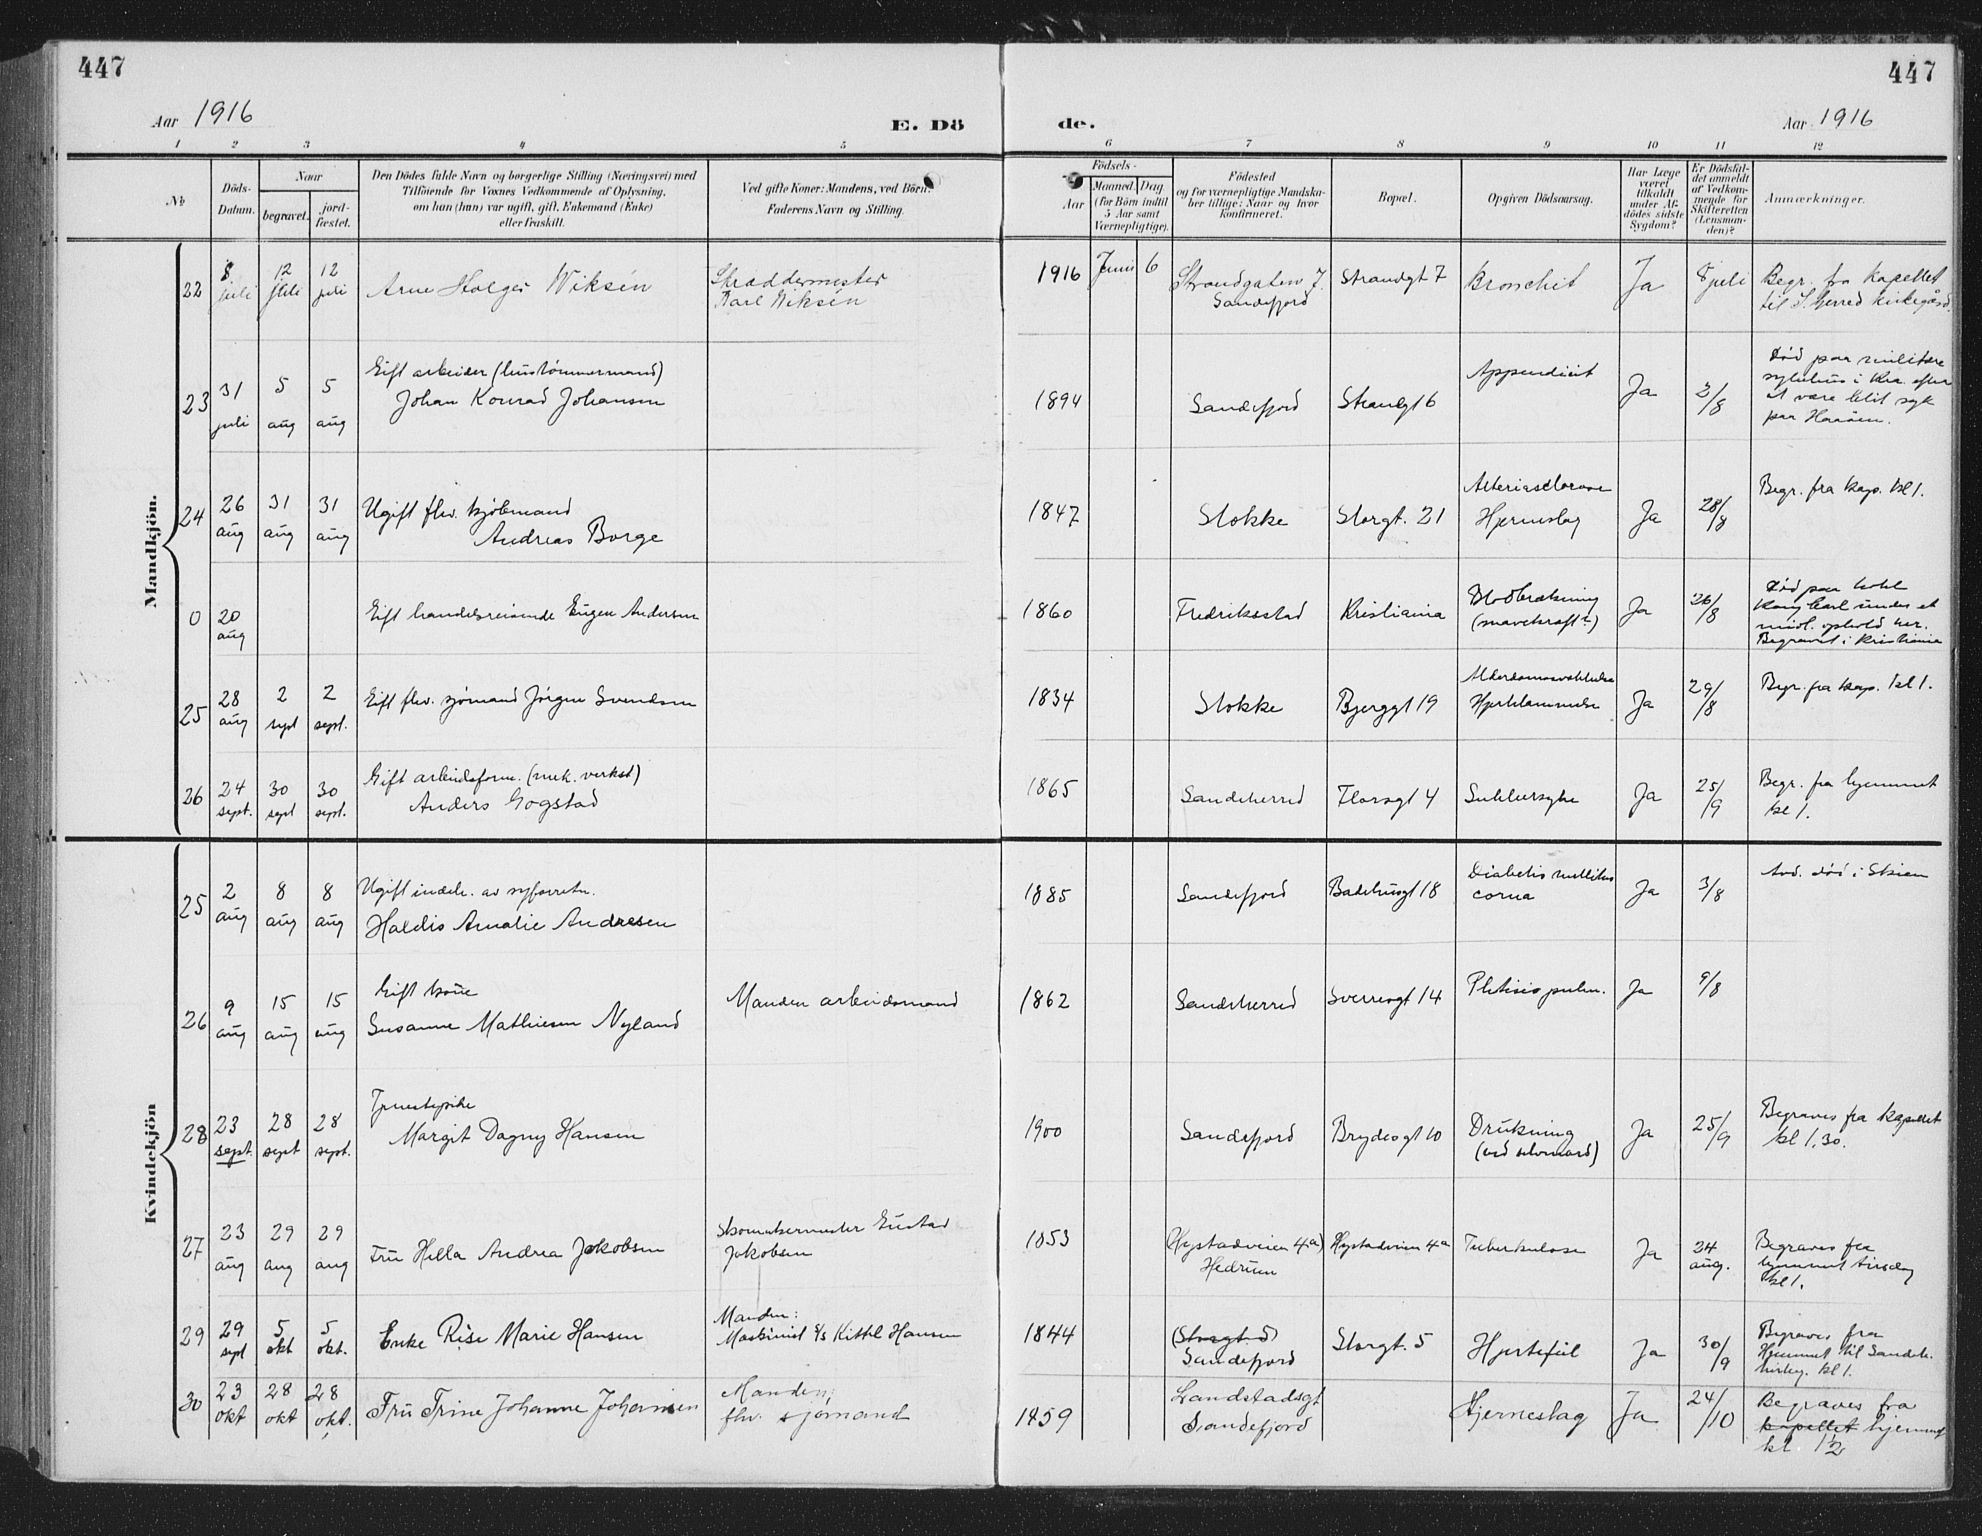 447
447
Aar 1916
E. Dö
de.
Aar 1916
1 2 3 4 5 6 7 8 9 10 11 12
No
Döds-
Datum.
Naar
begravet.
jord-
fæstet.
Den Dödes fulde Navn og borgerlige Stilling (Næringsvei) med
Tilföiende for Voxnes Vedkommende af Oplysning,
om han (hun) var ugift, gift, Enkemand (Enke)
eller fraskilt.
Ved gifte Koner: Mandens, ved Börn:
Faderens Navn og Stilling.
Födsels-
Aar
Maaned. Dag
(for Börn indtil
5 Aar samt
Værnepligtige).
Födested
og for værnepligtige Mandska-
ber tillige: Naar og hvor
konfirmeret.
Bopæl.
Opgiven Dödsaarsag.
Har Læge
været
tilkaldt
under Af-
dödes sidste
Sygdom?
Er Dödsfal-
det anmeldt
af Vedkom-
mende for
Skifteretten
(Lensman-
den)?
Anmærkninger.
Mandkjön.
22 8 juli 12 juli 12 juli Arne Holger Wiksén Skræddermester
Karl Wiksén 1916 Juni 6 Strandgaten 7.
Sandefjord Strandgt 7 Bronchit Ja 8 juli Begr. fra kapellet
til S.herred kirkegård.
23 31 juli 5 aug 5 aug Gift arbeider (hustømmermand)
Johan Konrad Johansen 1894 Sandefjord Strandgt 6 Appendicit Ja 2/8 Død paa militære
sykehus i Kra. efter
at være blit syk
paa Haaøen.
24 26 aug 31 aug 31 aug Ugift fhv. kjøbmand
Andreas Borge 1847 Stokke Storgt. 21
Hjerneslag Ja 28/8 Begr. fra kap. kl 1.
0 20 aug Gift handelsreisende Eugen Andersen 1860 Fredriksstad Kristiania Blodbrækning
(mavekræft?) Ja 26/8 Død paa hotel
Kong Carl under et
midl. ophold her.
Begravet i Kristiania
25 28 aug 2 sept 2 sept. Gift fhv. sjømand Jørgen Svendsen 1834 Stokke Bjerggt 19 Alderdomssvakkelse
Hjertelammelse Ja 29/8 Begr. fra kap. kl 1.
26 24 sept. 30 sept 30 sept. Gift arbeidsform. (mek. verkst)
Anders Gogstad 1865 Sandeherred Florsgt 4 Sukkersyke Ja 25/9 Begr. fra hjemmet
kl 1.
Kvindekjön
25 2 aug 8 aug 8 aug Ugift indeh. av syforretn.
Haldis Amalie Andresen 1885 Sandefjord Badehusgt 18 Diabetes mellitus
coma Ja 3/8 Avd. død i Skien
26 9 aug 15 aug 15 aug Gift kone
Susanne Mathiesen Nyland Manden arbeidsmand 1862 Sandeherred Sverresgt 14 Phtisis pulm. Ja 9/8
28 23 sept. 28 sept 28 sept. Tjenestepike
Margit Dagny Hansen 1900 Sandefjord Brydesgt 10 Drukning
(ved selvmord) Ja 25/9 Begraves fra kapellet
kl 1.30.
27 23 aug 29 aug 29 aug Fru Hella Andrea Jakobsen Skomakermester Gustav
Jakobsen 1853 (Hystadveien 4a)
Hedrum Hystadveien 4a Tuberkulose Ja 24 aug. Begraves fra
hjemmet tirsdag
kl 1.
29 29 sept 5 okt 5 okt. Enke Rise Marie Hansen Manden:
Maskinist S/S Kittil Hansen 1844 (Storgt. 5)
Sandefjord Storgt. 5 Hjertefeil Ja 30/9 Begraves fra
Hjemmet til Sandeh.
kirkeg. kl 1.
30 23 okt 28 okt 28 okt. Fru Trine Johanne Johansen Manden:
fhv. sjømand 1859 Landstadsgt
Sandefjord Hjerneslag Ja 24/10 Begraves fra
kapellet hjemmet
kl 1½